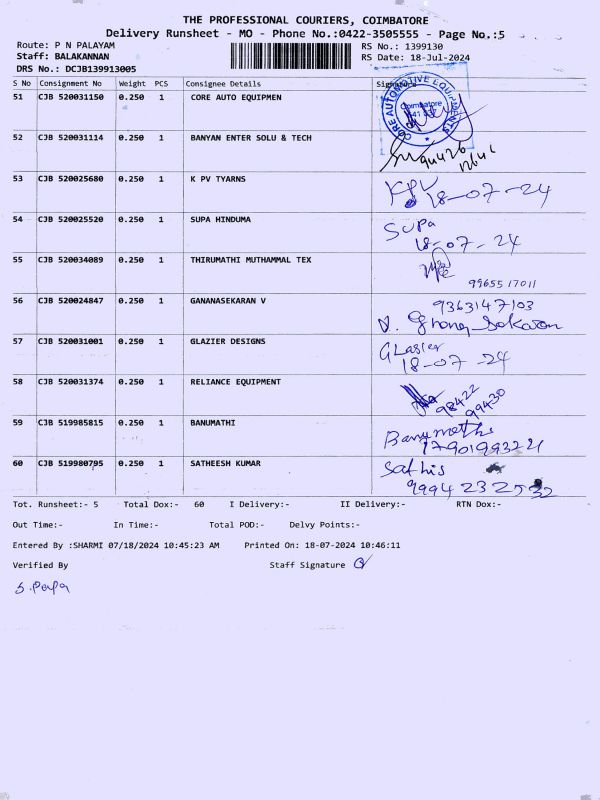 THE PROFESSIONAL COURIERS, COIMBATORE
Delivery Runsheet - MO - Phone No.:0422-3505555 - Page No.:5
Route: P N PALAYAM RS No.: 1399130
Staff: BALAKANNAN RS Date: 18-Jul-2024
DRS No.: DCJB139913005
S No Consignment No Weight PCS Consignee Details Signature
51 CJB 520031150 0.250 1 CORE AUTO EQUIPMEN
CORE AUTOMOTIVE EQUIPMENTS
Coimbatore
52 CJB 520031114 0.250 1 BANYAN ENTER SOLU & TECH
53 CJB 520025680 0.250 1 K PV TYARNS
KPV 18-07-24
54 CJB 520025520 0.250 1 SUPA HINDUMA
Supa
18-07-24
55 CJB 520034089 0.250 1 THIRUMATHI MUTHAMMAL TEX
9965517011
56 CJB 520024847 0.250 1 GANANASEKARAN V
9363147103
57 CJB 520031001 0.250 1 GLAZIER DESIGNS
18-07-24
58 CJB 520031374 0.250 1 RELIANCE EQUIPMENT
98422
99430
59 CJB 519985815 0.250 1 BANUMATHI
60 CJB 519980795 0.250 1 SATHEESH KUMAR
Sathis
9994232532
Tot. Runsheet:- 5 Total Dox:- 60 I Delivery:- II Delivery:- RTN Dox:-
Out Time:- In Time:- Total POD:- Delvy Points:-
Entered By :SHARMI 07/18/2024 10:45:23 AM Printed On: 18-07-2024 10:46:11
Verified By Staff Signature
S. Papa